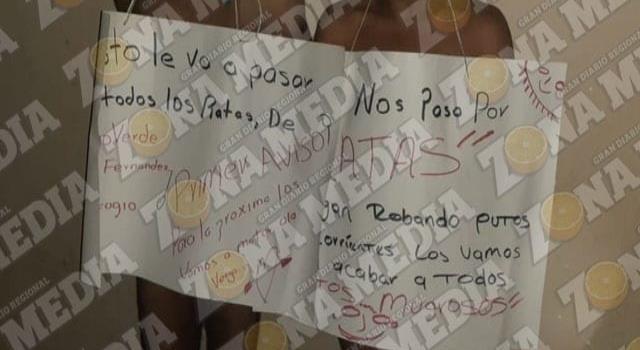 sto le va a pasar
todos los Ratas, De
oVerde
Fernandez
ogio
¡Primer AVISO!
Pa la proxima los
Vamos a matar ala
Verga
Nos Paso Por
ATAS"
gan Robando putos
corrientes Los vamos
acabar a TODOS
tos Mugrosos"
ojo
ZONA MEDIA
GRAN DIARIO REGIONAL